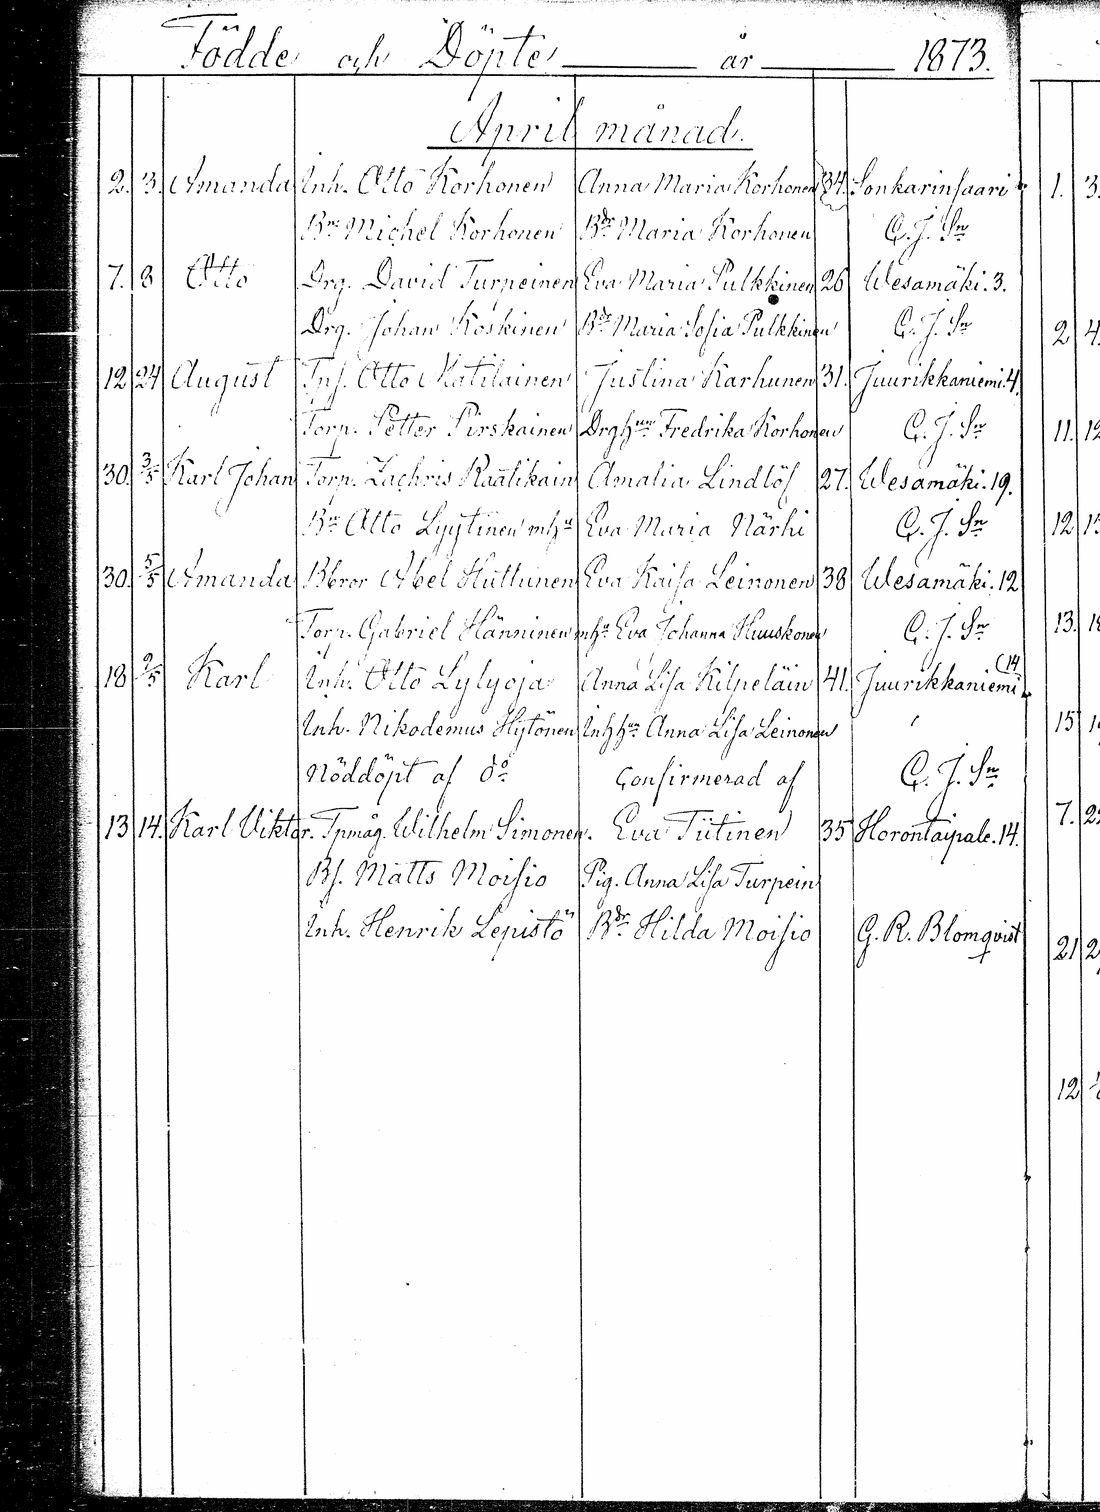 Födde och Döpte år 1873.
April månad.
2. 3. Amanda Inh. Otto Korhonen Anna Maria Korhonen 34. Sonkarinsaari
Br Michel Korhonen Bdr Maria Korhonen C. J. Sn
7. 8 Otto Drg. David Turpeinen Eva Maria Pulkkinen 26 Wesamäki. 3.
Drg. Johan Koskinen Bdr Maria Sofia Pulkkinen C. J. Sn
12 24 August Inh. Otto Matilainen Justina Karhunen 31. Juurikkaniemi. 4.
Torp. Petter Pirskainen Drghun Fredrika Korhonen C. J. Sn
30. 3/5 Karl Johan Torp. Zachris Räätikain Amalia Lindlöf 27. Wesamäki. 19.
Br Otto Lyytinen mhu Eva Maria Närhi C. J. Sn
30. 5/5 Amanda Bbror Abel Huttunen Eva Kaisa Leinonen 38 Wesamäki. 12
Torp. Gabriel Hänninen mhu Eva Johanna Huuskonen C. J. Sn
18 9/5 Karl Inh. Otto Lylyoja Anna Lisa Kilpeläin 41. Juurikkaniemi (14
Inh. Nikodemus Hytönen Inhhun Anna Lisa Leinonen
Nöddöpt af do Confirmerad af C. J. Sn
13 14. Karl Viktor. Tpmåg. Wilhelm Simonen. Eva Tiitinen 35 Horontaipale. 14.
Bs. Matts Moisio Pig. Anna Lisa Turpein
Inh. Henrik Lepistö Bdr Hilda Moisio G. R. Blomqvist